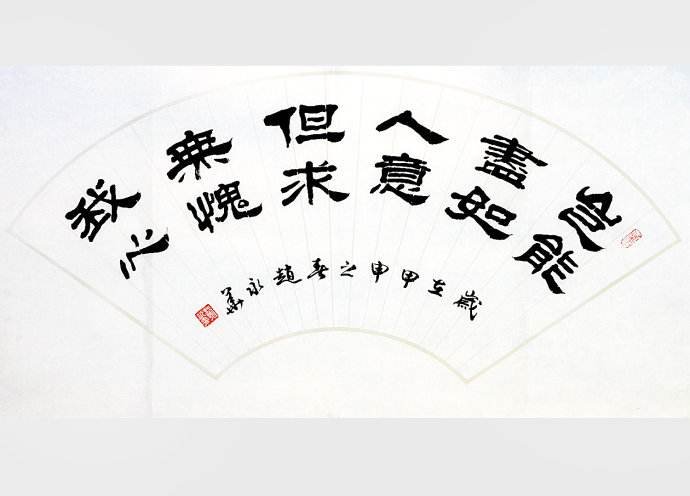 岂能
盡如
人意
但求
無愧
我心
歲在甲申之春趙永華